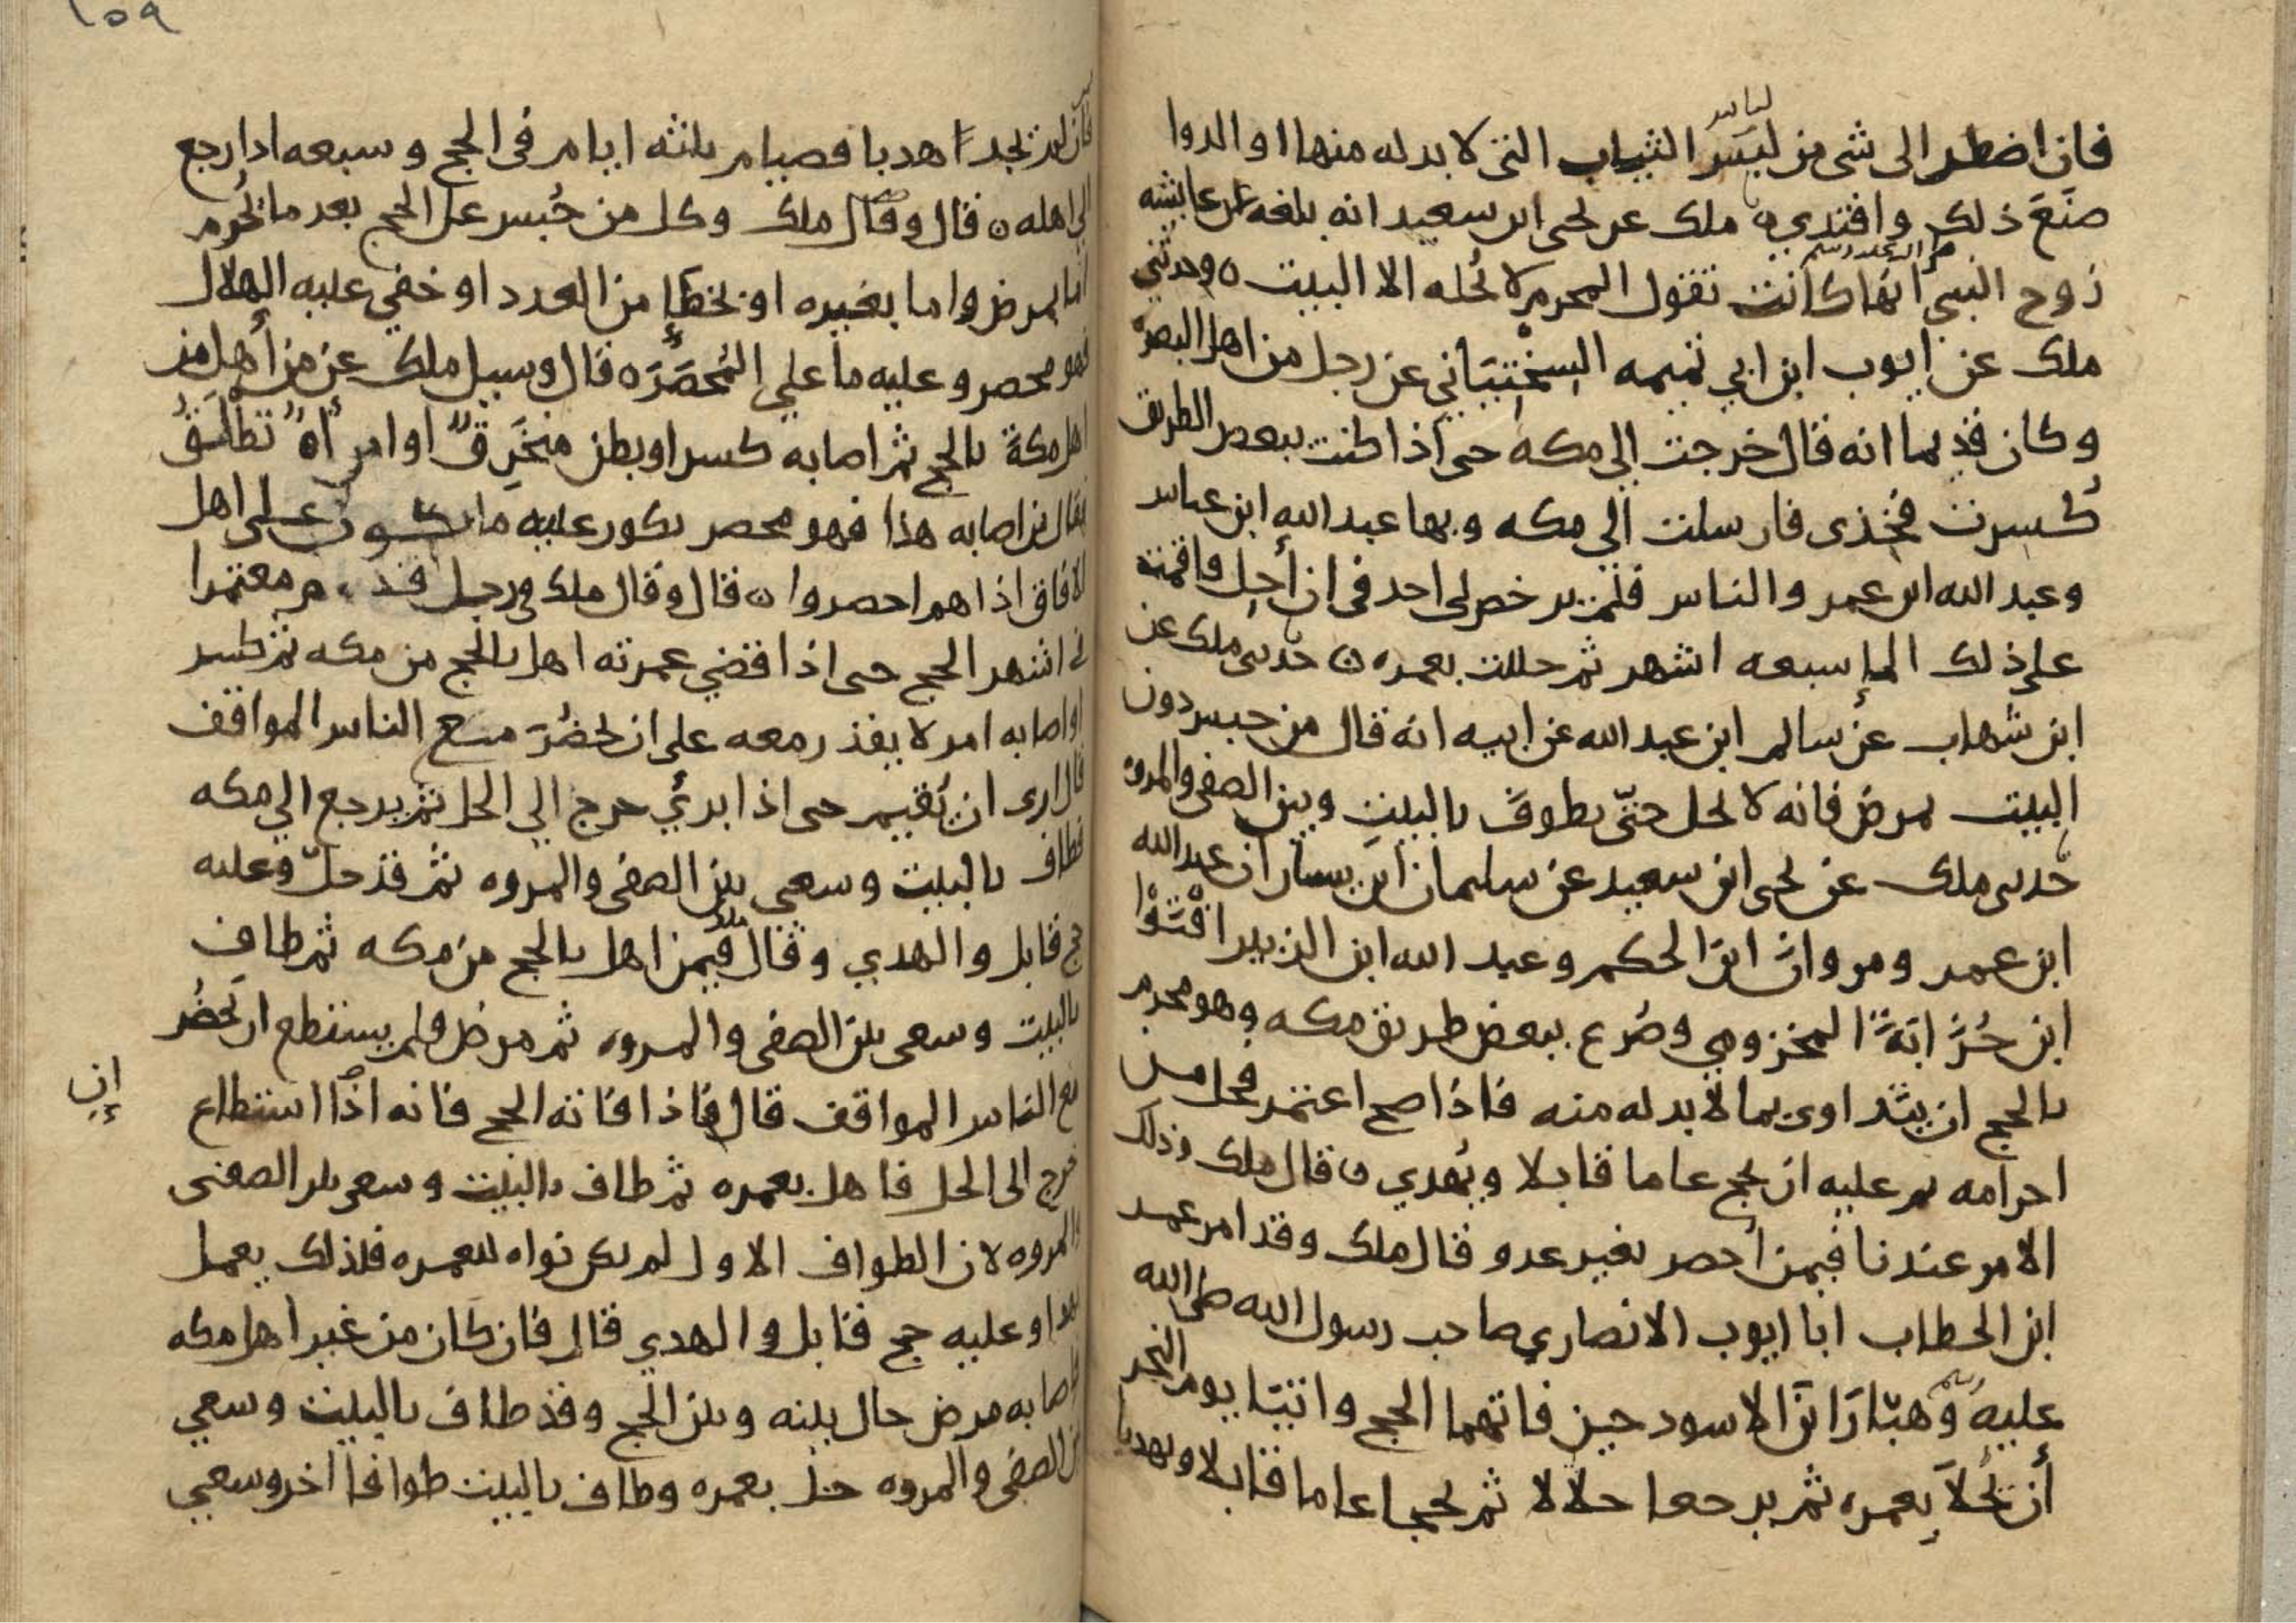 فان اضطر الى شى من لبس الثياب التى لا بد له منها او الدوا
لباس
صنع ذلك وافتدي ه ملك عن يحيى ابن سعيد انه بلغه عن عايشه
زوج النبي صلى الله عليه وسلم انها كانت تقول المحرم لا يحله الا البيت ه وحدثني
ملك عن ايوب ابن ابي تميمه السختياني عن رجل من اهل البصره
وكان قديما انه قال خرجت الي مكه حتى اذا كنت ببعض الطريق
كسرت فخذى فارسلت الي مكه وبها عبد الله ابن عباس
وعبد الله ابن عمر والناس فلم يرخص لى احد فى ان أحل واقمت
على ذلك الما سبعه اشهر ثم حللت بعمره ه حدثنى ملك عن
ابن شهاب عن سالم ابن عبد الله عن ابيه انه قال من حبس دون
البيت بمرض فانه لا يحل حتّى يطوف بالبيت وبين الصفى والمروه
حدثنى ملك عن يحيى ابن سعيد عن سليمان ابن يسار ان عبد الله
ابن عمر ومروان ابن الحكم وعبد الله ابن الزبير افتوا
ابن حزابة المخزومي وصرع ببعض طريق مكه وهو محرم
بالحج ان يتداوى بما لا بد له منه فاذا صح اعتمر فحل من
احرامه ثم عليه ان يحج عاما قابلا ويهدي ه قال ملك وذلك
الامر عندنا فيمن أحصر بغير عدو قال ملك وقد امر عمر
ابن الخطاب ابا ايوب الانصاري صاحب رسول الله صلى الله
عليه وسلم وهبّار ابن الاسود حين فاتهما الحج واتيا يوم النحر
أن يحلا بعمره ثم يرجعا حلالا ثم يحجا عاما قابلا ويهديا
١٥٩
فان لم تجدا هديا فصيام ثلثه ايام فى الحج وسبعه اذا رجع
الي اهله ه قال وقال ملك وكل من حبس عن الحج بعد ما يحرم
اما بمرض واما بغيره او بخطإ من العدد او خفي عليه الهلال
فهو محصر وعليه ما علي المحصر ه قال وسيل ملك عن من أهل من
اهل مكة بالحج ثم اصابه كسر او بطن منخرق او امرأة تطلق
فقال من اصابه هذا فهو محصر يكون عليه ما يكون على اهل
الافاق اذا هم احصروا ه قال وقال ملك فى رجل قدم معتمرا
في اشهر الحج حتى اذا قضي عمرته اهل بالحج من مكه ثم كسر
او اصابه امر لا يقدر معه على ان يحضر مع الناس المواقف
قال ارى ان يقيم حتى اذا برئ خرج الي الحل ثم يرجع الي مكه
فطاف بالبيت وسعي بين الصفى والمروه ثم قد حل وعليه
حج قابل والهدي وقال ملك فيمن اهل بالحج من مكه ثم طاف
بالبيت وسعى بين الصفى والمروه ثم مرض فلم يستطع ان يحضر
مع الناس المواقف قال فاذا فاته الحج فانه اذا استطاع
إن
خرج الى الحل فاهل بعمره ثم طاف بالبيت وسعى بين الصفى
والمروه لان الطواف الاول لم يكن نواه للعمره فلذلك يعمل
بهذا وعليه حج قابل والهدي قال فان كان من غير اهل مكه
فاصابه مرض حال بينه وبين الحج وقد طاف بالبيت وسعي
بين الصفى والمروه حل بعمره وطاف بالبيت طوافا اخر وسعي